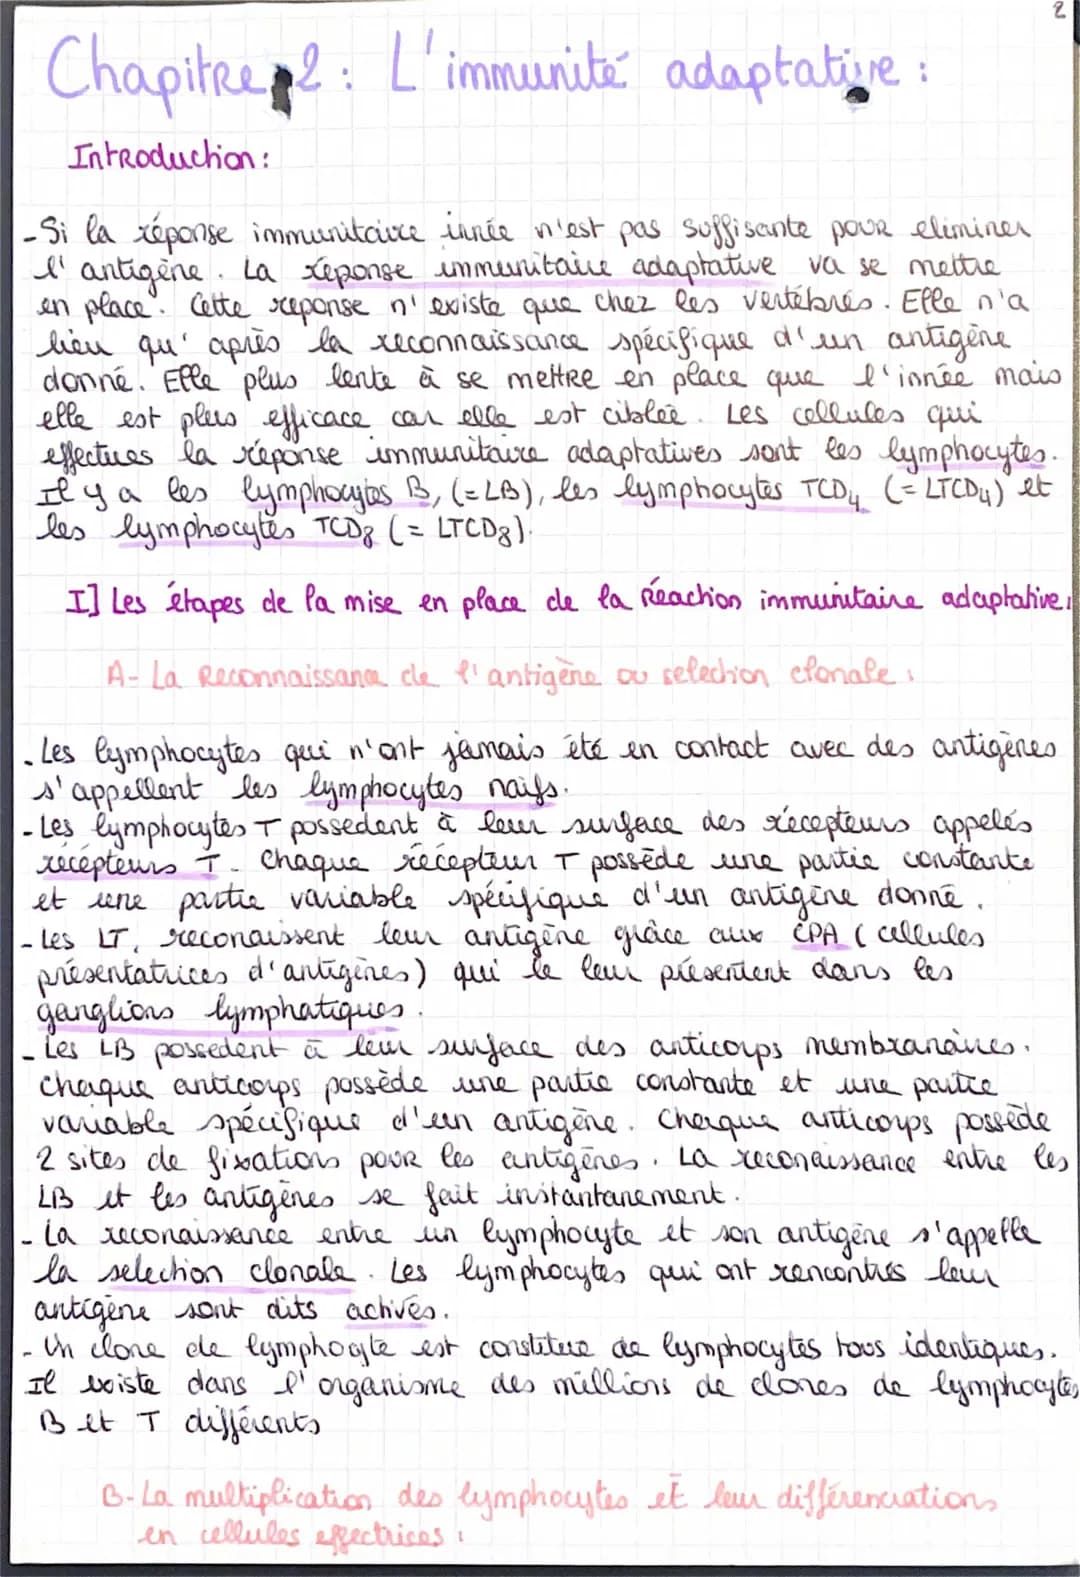 2
Chapitre 2 : L'immunité adaptative :
Introduction :
- Si la réponse immunitaire innée n'est pas suffisante pour eliminer
l'antigène. La reponse immunitaire adaptative va se mettre
en place. Cette reponse n'existe que chez les vertébrés. Elle n'a
lieu qu'après la reconnaissance spécifique d'un antigène
donné. Elle plus lente à se mettre en place que l'innée mais
elle est plus efficace car elle est ciblée. Les cellules qui
effectues la réponse immunitaire adaptatives sont les lymphocytes.
Il y a les lymphocytes B, (=LB), les lymphocytes TCD4 (= LTCD4) et
les lymphocytes TCD8 (= LTCD8).
I] Les étapes de la mise en place de la réaction immunitaire adaptative :
A- La Reconnaissance de l'antigène ou selection clonale :
- Les lymphocytes qui n'ont jamais été en contact avec des antigènes
s'appellent les lymphocytes naïfs.
- Les lymphocytes T possedent à leur surface des récepteurs appelés
récépteurs T. Chaque récepteur T possède une partie constante
et une partie variable spécifique d'un antigène donné.
- Les LT, reconaissent leur antigène grâce aux CPA (cellules
présentatrices d'antigènes) qui le leur présentent dans les
ganglions lymphatiques.
- Les LB possedent à leur surface des anticorps membranaires.
Chaque anticorps possède une partie constante et une partie
variable spécifique d'un antigène. Chaque anticorps possède
2 sites de fixations pour les antigènes. La reconaissance entre les
LB et les antigènes se fait instantanement.
- La reconaissance entre un lymphocyte et son antigène s'appelle
la selection clonale. Les lymphocytes qui ont rencontrés leur
antigène sont dits activés.
- Un clone de lymphocyte est constitué de lymphocytes tous identiques.
Il existe dans l'organisme des millions de clones de lymphocytes
B et T différents
B- La multiplication des lymphocytes et leur différenciations
en cellules effectrices :